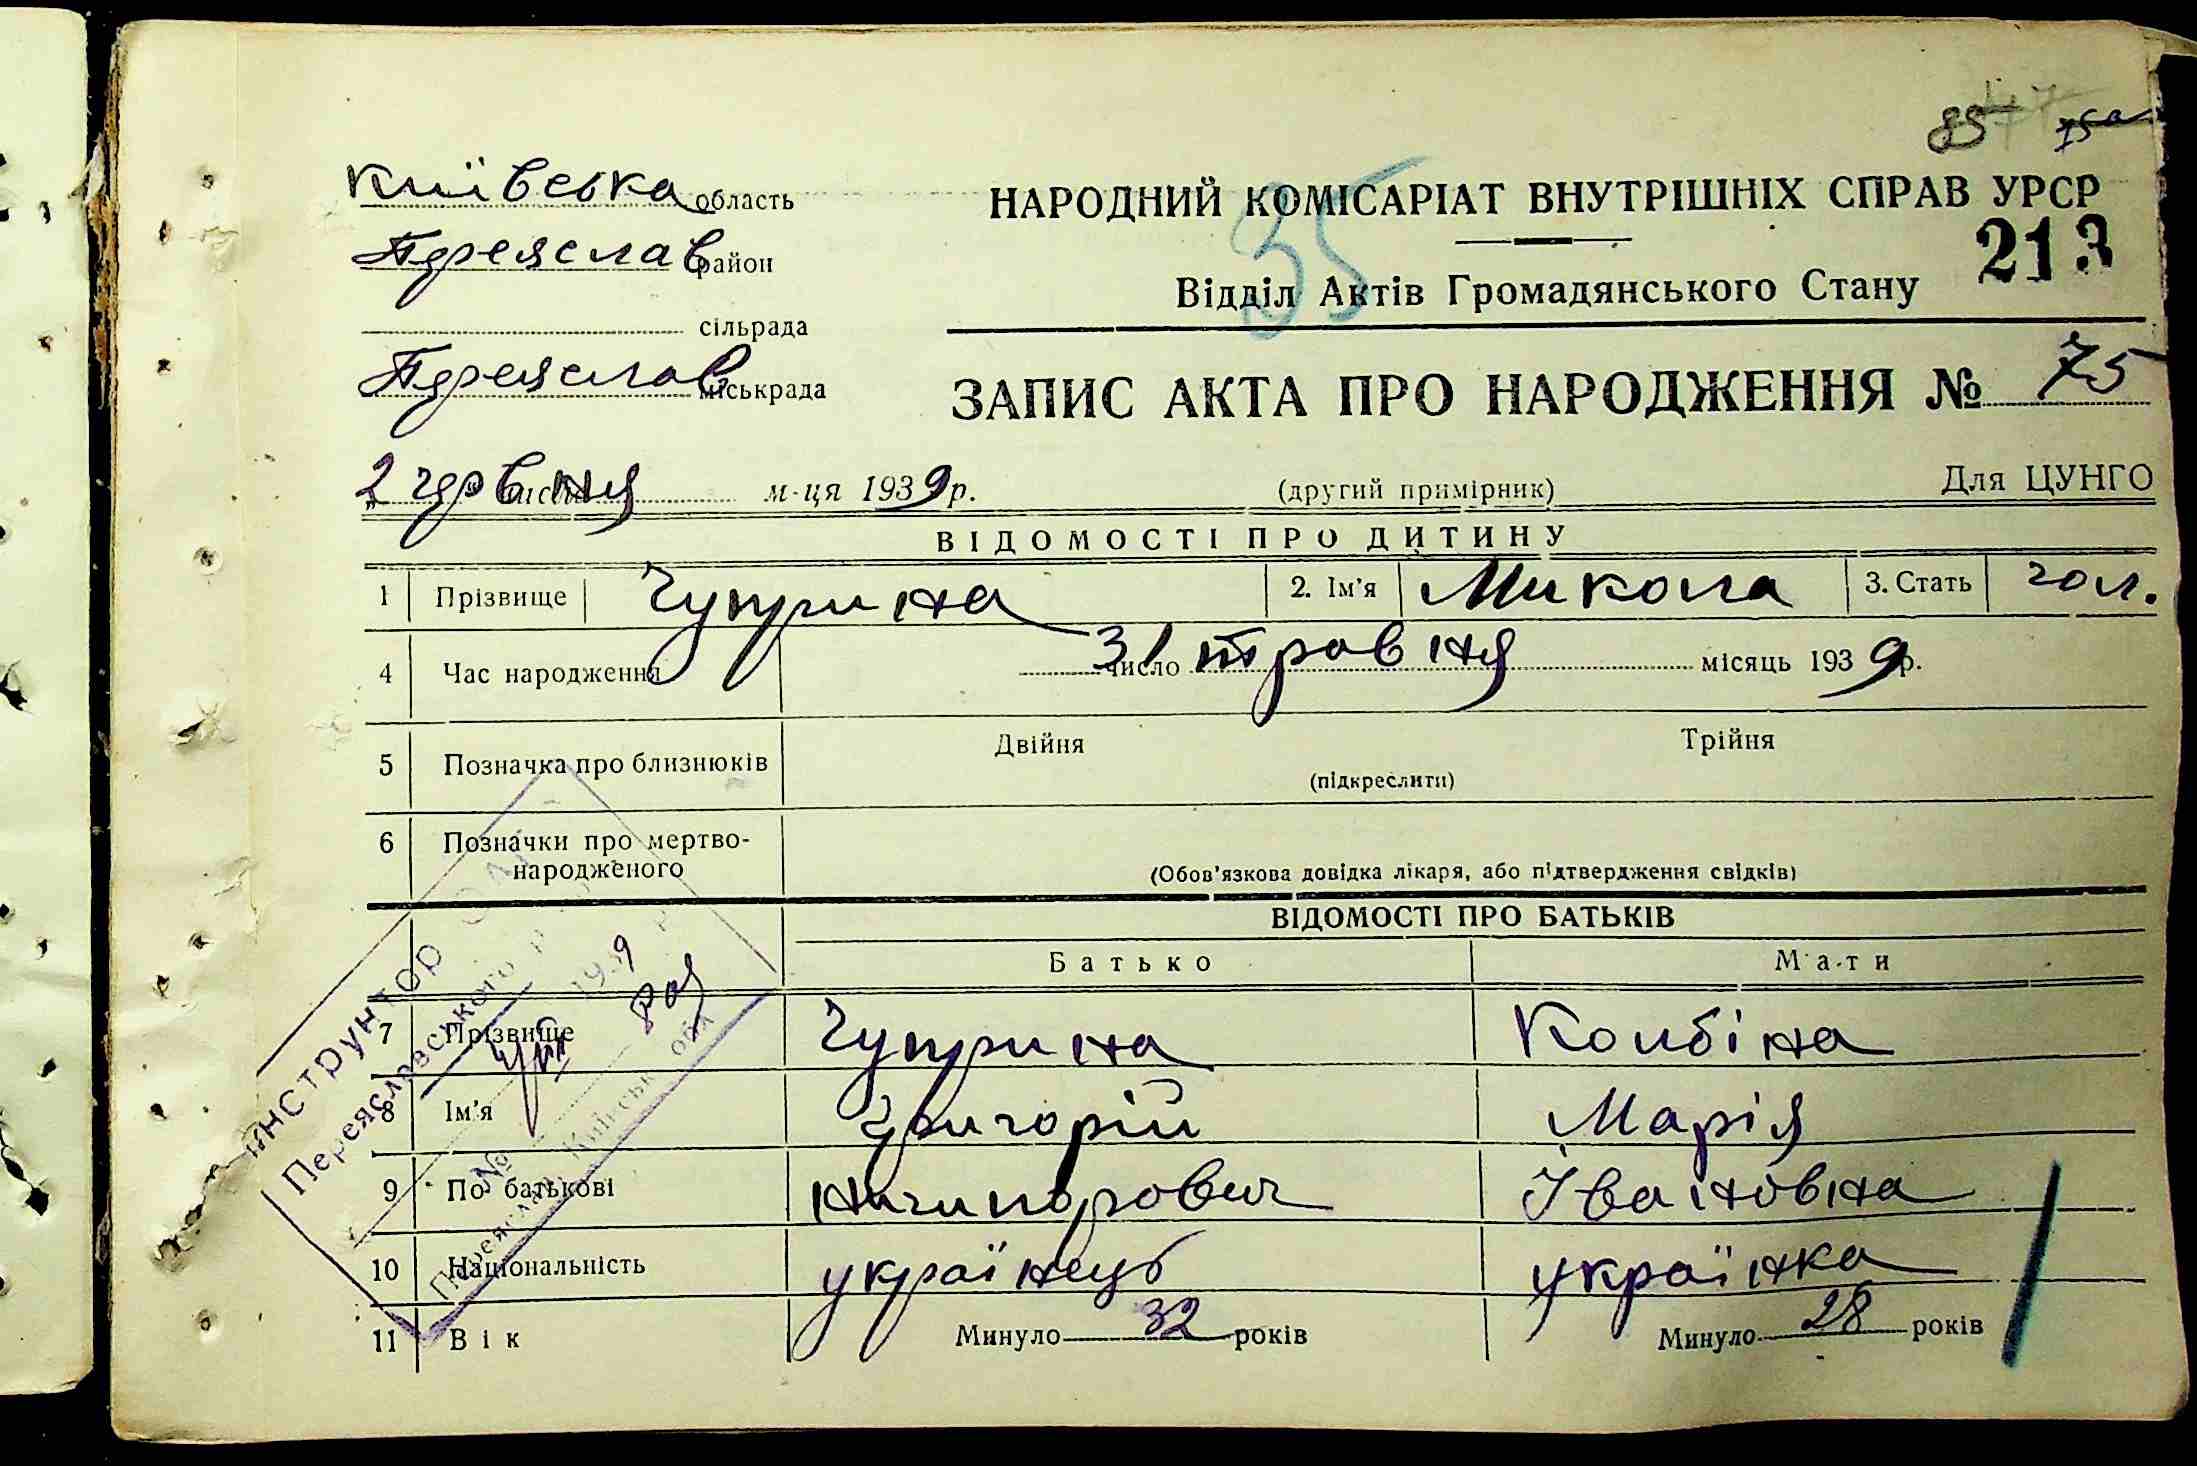 85 75а
Київська область
НАРОДНИЙ КОМІСАРІАТ ВНУТРІШНІХ СПРАВ УРСР
35
213
Переяслав район
Відділ Актів Громадянського Стану
сільрада
Переяслав міськрада
ЗАПИС АКТА ПРО НАРОДЖЕННЯ № 75
„2 червня м-ця 1939 р.
(другий примірник)
Для ЦУНГО
ВІДОМОСТІ ПРО ДИТИНУ
1 Прізвище Чуприна 2. Ім'я Микола 3. Стать чол.
4 Час народження 31 число травня місяць 1939 р.
5 Позначка про близнюків Двійня Трійня
(підкреслити)
6 Позначки про мертво-
народженого
(Обов'язкова довідка лікаря, або підтвердження свідків)
ВІДОМОСТІ ПРО БАТЬКІВ
Батько Мати
7 Прізвище Чуприна Колбіна
8 Ім'я Григорій Марія
9 По батькові Ничипорович Івановна
10 Національність українець українка
11 Вік Минуло 32 років Минуло 28 років
Інструктор
Переяславського
№
1939
Київськ обл